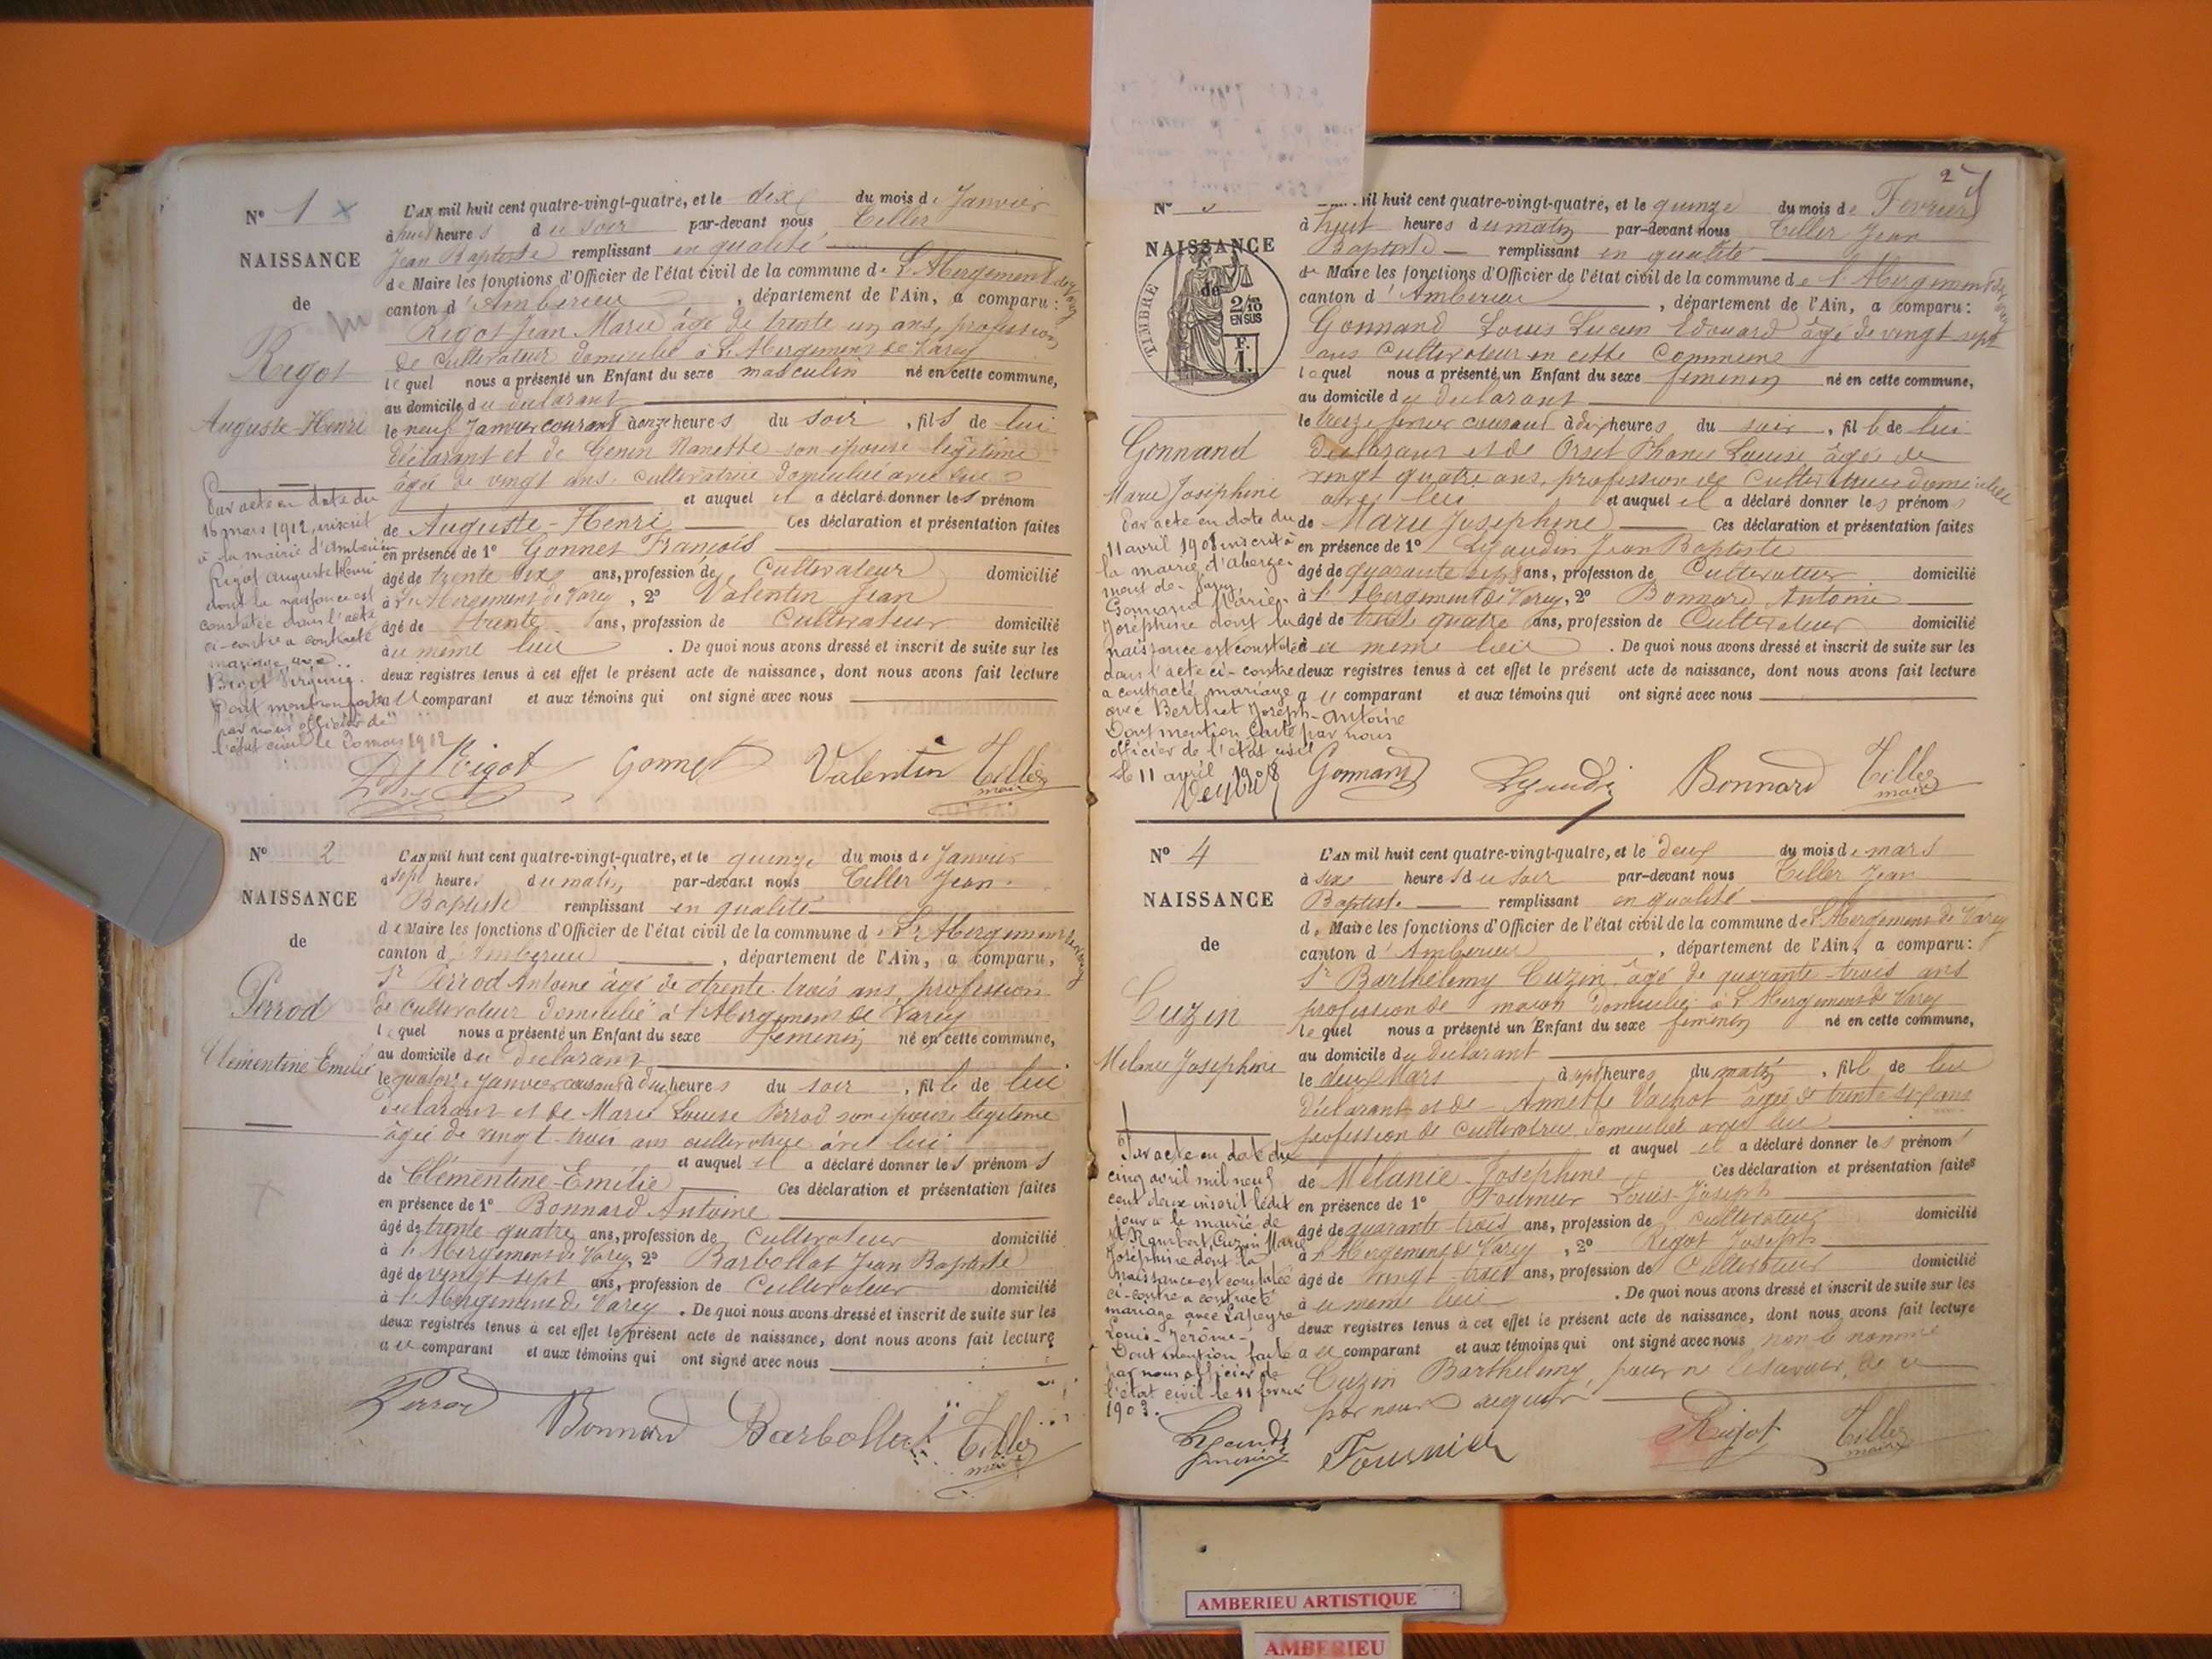 N° 1
NAISSANCE
de
Rigot
Auguste Henri
Par acte en date du
16 mars 1912, inscrit
à la mairie d'Ambérieu
Rigot Auguste Henri
dont la naissance est
constatée dans l'acte
ci-contre a contracté
mariage avec
Bigot Virginie.
Dont mention faite
par nous officier de
l'état civil le 20 mars 1912
L'AN mil huit cent quatre-vingt-quatre, et le dix du mois de Janvier
à huit heures du soir par-devant nous Tiller
Jean Baptiste remplissant en qualité
de Maire les fonctions d'Officier de l'état civil de la commune de L'Abergement de Varey
canton d'Ambérieu, département de l'Ain, a comparu:
Rigot Jean Marie âgé de trente un ans, profession
de cultivateur domicilié à L'Abergement de Varey
lequel nous a présenté un Enfant du sexe masculin né en cette commune,
au domicile du déclarant
le neuf Janvier courant à onze heures du soir, fils de lui
déclarant et de Genin Nanette son épouse légitime
âgée de vingt ans, cultivatrice domiciliée avec lui
et auquel il a déclaré donner les prénom
de Auguste-Henri Ces déclaration et présentation faites
en présence de 1° Gonnet François
âgé de trente six ans, profession de Cultivateur domicilié
à L'Abergement de Varey, 2° Valentin Jean
âgé de trente ans, profession de Cultivateur domicilié
au même lieu. De quoi nous avons dressé et inscrit de suite sur les
deux registres tenus à cet effet le présent acte de naissance, dont nous avons fait lecture
au comparant et aux témoins qui ont signé avec nous
Rigot Gonnet Valentin Tiller
maire
N° 2
NAISSANCE
de
Perrod
Clémentine Emélie
L'AN mil huit cent quatre-vingt-quatre, et le quinze du mois de Janvier
à sept heures du matin par-devant nous Tiller Jean
Baptiste remplissant en qualité
de Maire les fonctions d'Officier de l'état civil de la commune de L'Abergement de Varey
canton d'Ambérieu, département de l'Ain, a comparu,
Sr Perrod Antoine âgé de trente trois ans, profession
de cultivateur domicilié à l'Abergement de Varey
lequel nous a présenté un Enfant du sexe féminin né en cette commune,
au domicile du déclarant
le quatorze Janvier courant à dix heures du soir, fille de lui
déclarant et de Marie Louise Perrod son épouse légitime
âgée de vingt-trois ans cultivatrice avec lui
et auquel il a déclaré donner les prénoms
de Clémentine-Emélie Ces déclaration et présentation faites
en présence de 1° Bonnard Antoine
âgé de trente quatre ans, profession de Cultivateur domicilié
à l'Abergement de Varey, 2° Barbollat Jean Baptiste
âgé de vingt sept ans, profession de Cultivateur domicilié
à l'Abergement de Varey. De quoi nous avons dressé et inscrit de suite sur les
deux registres tenus à cet effet le présent acte de naissance, dont nous avons fait lecture
au comparant et aux témoins qui ont signé avec nous
Perrod Bonnard Barbollat Tiller
maire
2
N°
NAISSANCE
de
TIMBRE
2/10
EN SUS
F.
1.
Gonnand
Marie Joséphine
Par acte en date du
11 avril 1908 inscrit à
la mairie d'aberge-
ment-de-Varey
Gonnand Marie-
Joséphine dont la
naissance est constatée
dans l'acte ci-contre
a contracté mariage
avec Berthet Joseph-Antoine
Dont mention faite par nous
officier de l'état civil
le 11 avril 1908
mil huit cent quatre-vingt-quatre, et le quinze du mois de Février
à huit heures du matin par-devant nous Tiller Jean
Baptiste remplissant en qualité
de Maire les fonctions d'Officier de l'état civil de la commune de l'Abergement de Varey
canton d'Ambérieu, département de l'Ain, a comparu:
Gonnand Louis Lucien Edouard âgé de vingt sept
ans Cultivateur en cette Commune
lequel nous a présenté un Enfant du sexe féminin né en cette commune,
au domicile du déclarant
le treize février courant à dix heures du soir, fille de lui
déclarant et de Orset Phanie Louise âgée de
vingt quatre ans, profession de Cultivatrice domiciliée
avec lui et auquel il a déclaré donner les prénoms
de Marie Joséphine Ces déclaration et présentation faites
en présence de 1° Ligaudin Jean Baptiste
âgé de quarante sept ans, profession de Cultivateur domicilié
à l'Abergement de Varey, 2° Bonnard Antoine
âgé de trente quatre ans, profession de Cultivateur domicilié
à ce même lieu. De quoi nous avons dressé et inscrit de suite sur les
deux registres tenus à cet effet le présent acte de naissance, dont nous avons fait lecture
au comparant et aux témoins qui ont signé avec nous
Gonnand Bonnard Tiller
maire
N° 4
NAISSANCE
de
Cuzin
Mélanie Joséphine
Par acte en date du
cinq avril mil neuf
cent deux inscrit ledit
jour à la mairie de
St Rambert, Cuzin Marie
Joséphine dont la
naissance est constatée
ci-contre a contracté
mariage avec Lapeyre
Louis-Jérôme-
Dont mention faite
par nous officier de
l'état civil le 11 février
1903.
L'AN mil huit cent quatre-vingt-quatre, et le deux du mois de mars
à six heures du soir par-devant nous Tiller Jean
Baptiste remplissant en qualité
de Maire les fonctions d'Officier de l'état civil de la commune de L'Abergement de Varey
canton d'Ambérieu, département de l'Ain, a comparu:
Sr Barthélemy Cuzin, âgé de quarante-trois ans
profession de maçon domicilié à L'Abergement de Varey
lequel nous a présenté un Enfant du sexe féminin né en cette commune,
au domicile du déclarant
le deux Mars à sept heures du matin, fille de lui
déclarant et de Annette Vachot âgée de trente six ans
profession de cultivatrice domiciliée avec lui
et auquel il a déclaré donner les prénoms
de Mélanie Joséphine Ces déclaration et présentation faites
en présence de 1° Fournier Louis-Joseph
âgé de quarante-trois ans, profession de cultivateur domicilié
à l'Abergement de Varey, 2° Rigot Joseph
âgé de vingt-trois ans, profession de Cultivateur domicilié
à ce même lieu. De quoi nous avons dressé et inscrit de suite sur les
deux registres tenus à cet effet le présent acte de naissance, dont nous avons fait lecture
au comparant et aux témoins qui ont signé avec nous non le nommé
Cuzin Barthélemy, pour ne le savoir, de ce
par nous requis
Fournier Rigot Tiller
maire
AMBERIEU ARTISTIQUE
AMBERIEU